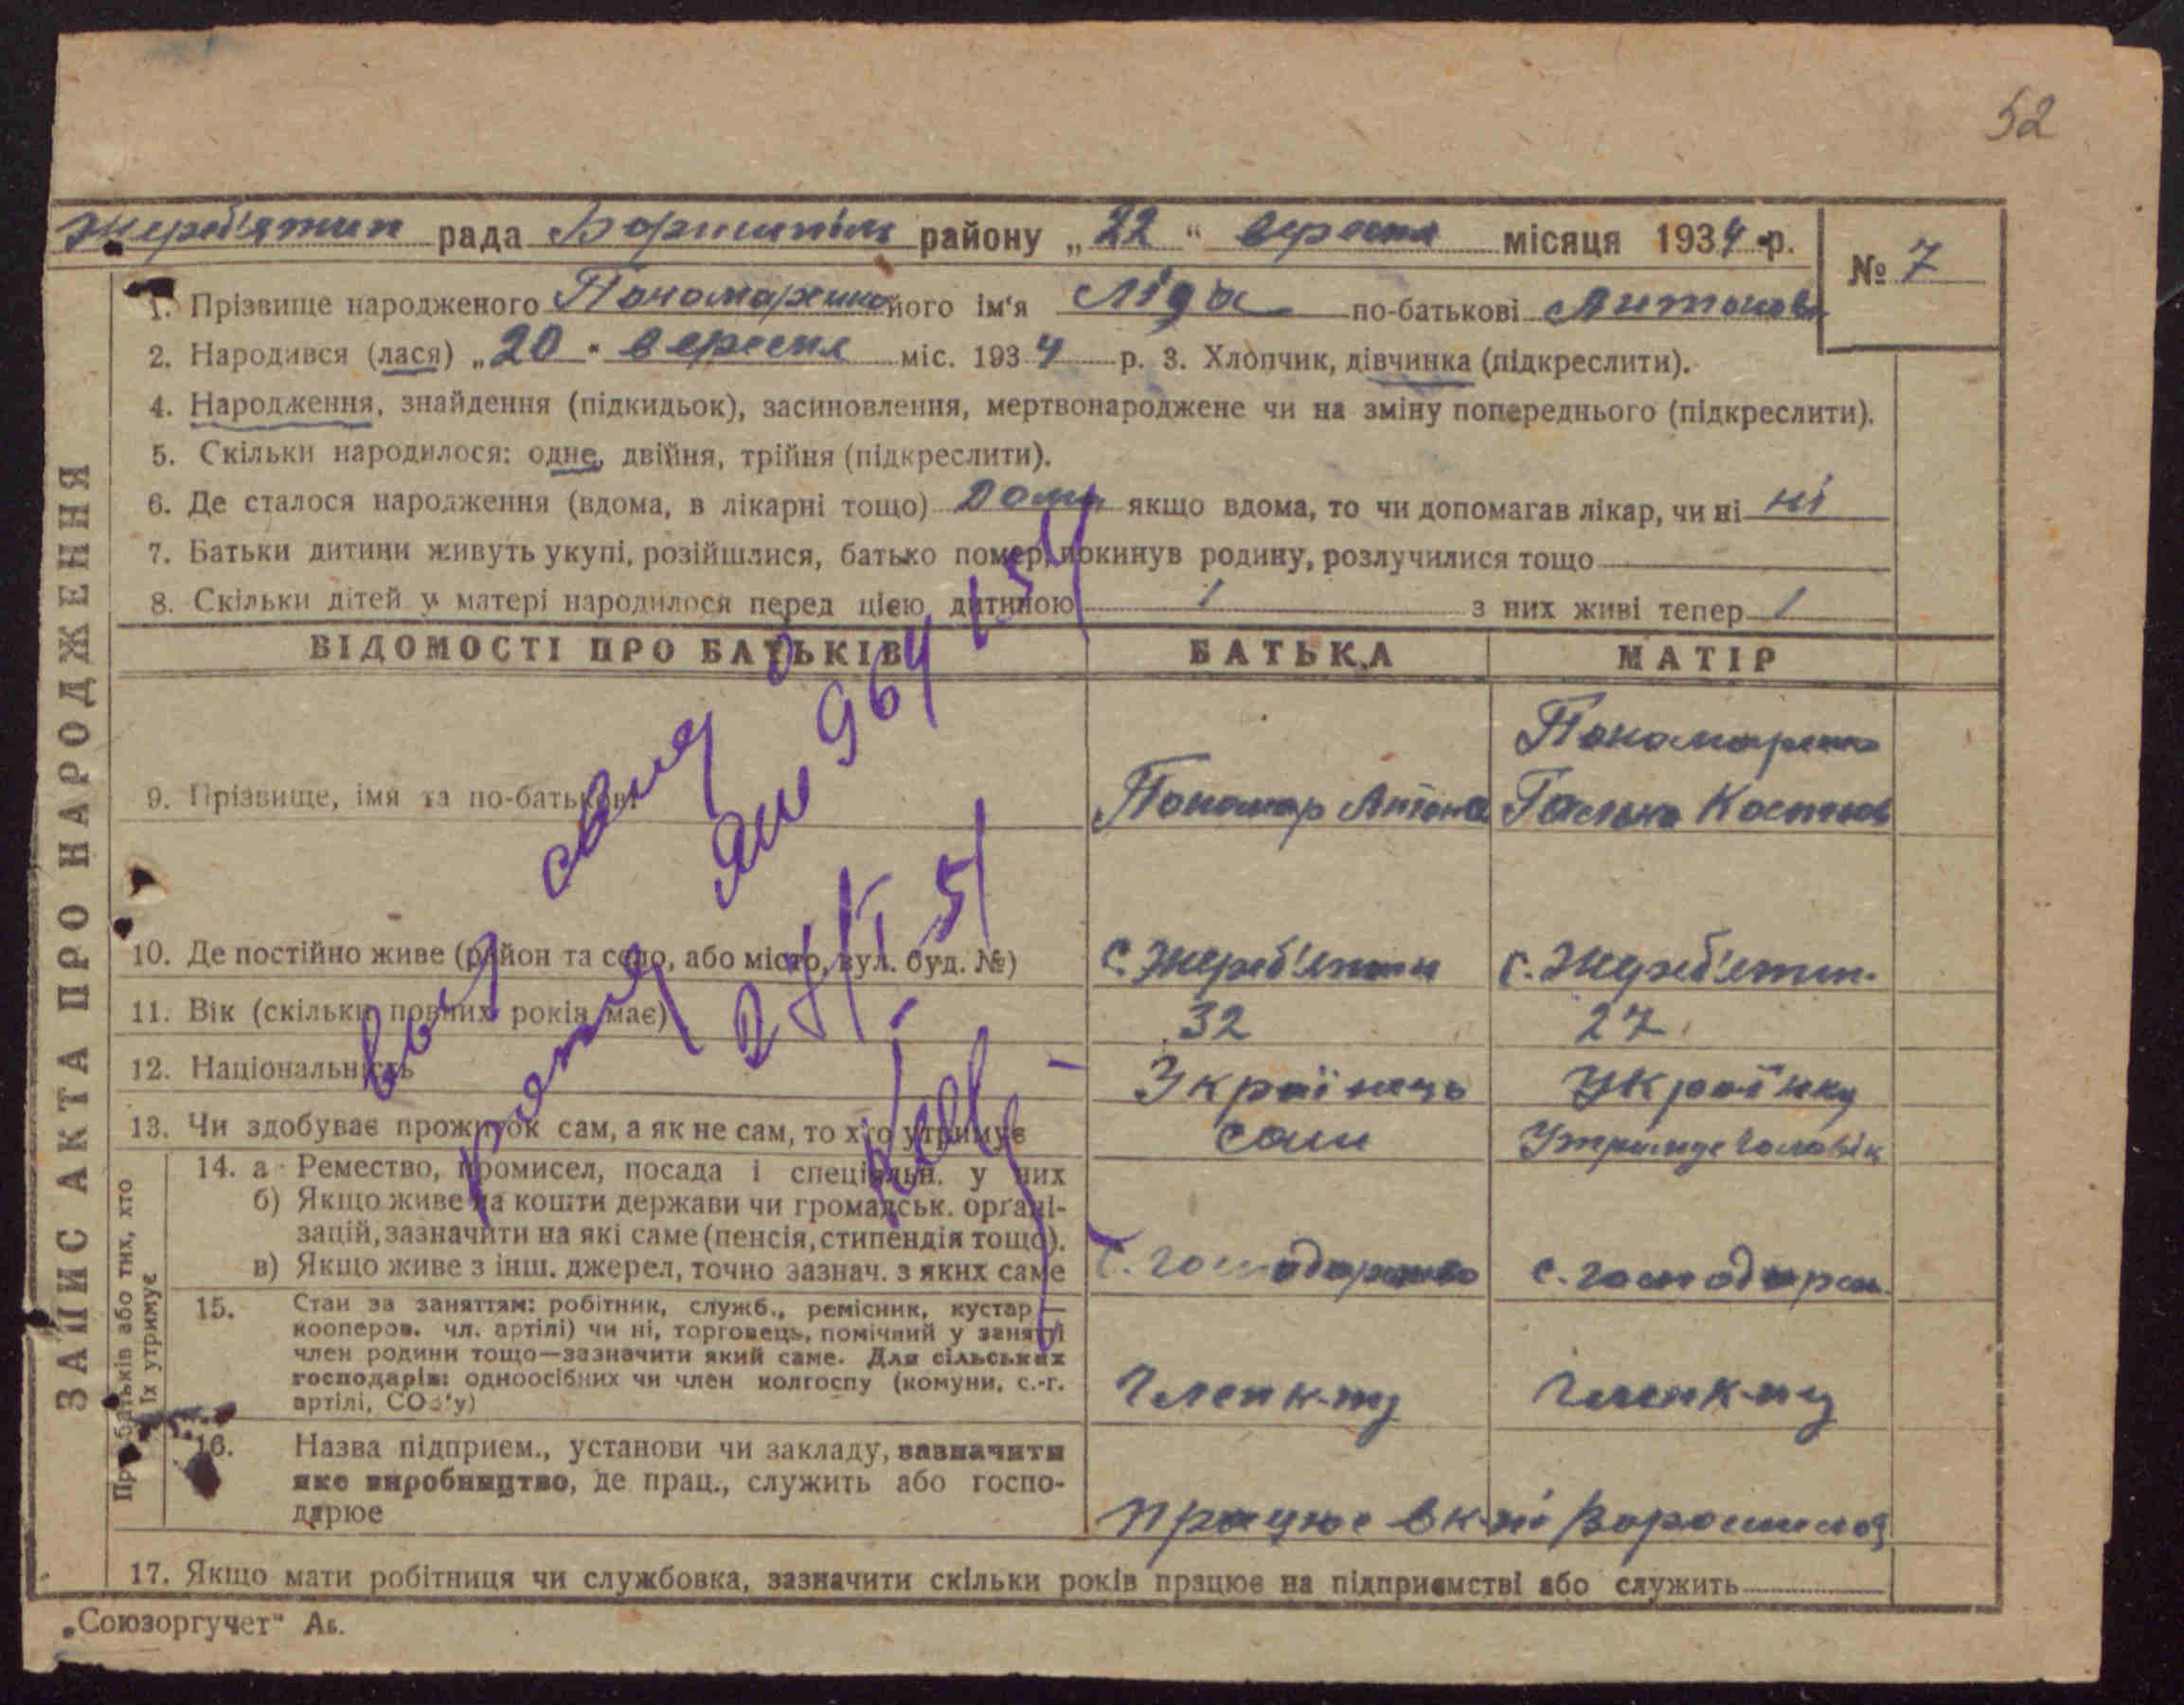 52
Жереб'ятин рада Бориспіль району „22“ вересня місяця 1934 р.
№ 7
1. Прізвище народженого Пономаренко його ім'я Ліда по-батькові Антонов
2. Народився (лася) „20“ вересня міс. 1934 р. 3. Хлопчик, дівчинка (підкреслити).
4. Народження, знайдення (підкидьок), засиновлення, мертвонароджене чи на зміну попереднього (підкреслити).
5. Скільки народилося: одне, двійня, трійня (підкреслити).
6. Де сталося народження (вдома, в лікарні тощо) дома якщо вдома, то чи допомагав лікар, чи ні ні
7. Батьки дитини живуть укупі, розійшлися, батько помер, покинув родину, розлучилися тощо
8. Скільки дітей у матері народилося перед цією дитиною 1 з них живі тепер 1
ВІДОМОСТІ ПРО БАТЬКІВ БАТЬКА МАТІР
Пономаренко
9. Прізвище, імя та по-батькові Пономар Антона Галька Костков
10. Де постійно живе (район та село, або місто, вул. буд. №) с. Жереб'ятин с. Жереб'ятин.
11. Вік (скільки повних років має) 32 27
12. Національність Українець Українка
13. Чи здобуває прожиток сам, а як не сам, то хто утримує сам Утримує чоловік
14. а Ремество, промисел, посада і спеціяльн. у них
б) Якщо живе на кошти держави чи громадськ. орґані-
зацій, зазначити на які саме (пенсія, стипендія тощо).
в) Якщо живе з інш. джерел, точно зазнач. з яких саме с. господарство с. господарств
15. Стан за заняттям: робітник, служб., ремісник, кустар —
кооперов. чл. артілі) чи ні, торговець, помічний у занятті
член родини тощо—зазначити який саме. Для сільських
господарів: одноосібних чи член колгоспу (комуни, с.-г.
артілі, СОЗ'у) Член к-пу член к-пу
16. Назва підприєм., установи чи закладу, зазначити
яке виробництво, де прац., служить або госпо-
дарює працює в к-пі Ворошилова
17. Якщо мати робітниця чи службовка, зазначити скільки років працює на підприємстві або служить
„Союзоргучет“ Аь.
ЗАПИС АКТА ПРО НАРОДЖЕННЯ
Про батьків або тих, хто
їх утримує